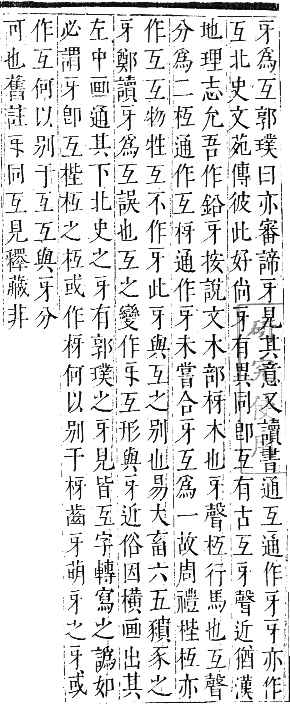 牙爲互郭璞曰亦審諦牙見其意又讀書通互通作牙牙亦作
互北史文苑傳彼此好尚牙有異同卽互有古互牙聲近猶漢
地理志允吾作鉛牙按說文木部枒木也牙聲枑行馬也互聲
分爲二枑通作互枒通作牙未嘗合牙互爲一故周禮梐枑亦
作互互物牲互不作牙此牙與互之别也易大畜六五豶豕之
牙鄭讀牙爲互誤也互之變作㸦互形與牙近俗因橫画出其
左中画通其下北史之牙有郭璞之牙見皆互字轉寫之譌如
必謂牙卽互梐枑之枑或作枒何以别于枒齒牙萌牙之牙或
作互何以别于互互與牙分
可也舊註㸦同互見釋藏非